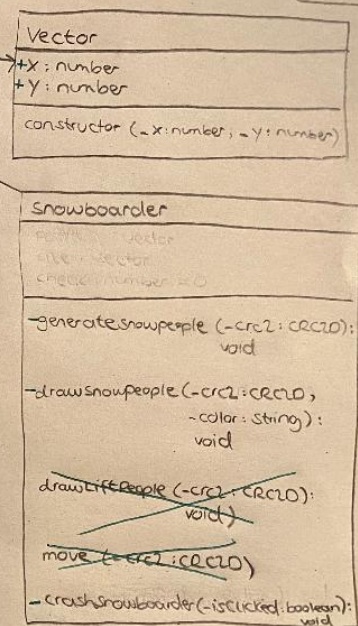 Vector
+X: number
+Y: number
constructor (_x:number, _y:number)
snowboarder
: Vector
: Vector
: number = 0
-generatesnowpeople (-crc2: CRC2D):
void
-drawsnowpeople (-crc2: CRC2D,
-color: string):
void
drawLiftPeople (-crc2: CRC2D):
void)
move (-crc2: CRC2D)
-crashsnowboarder(-isClicked: boolean):
void